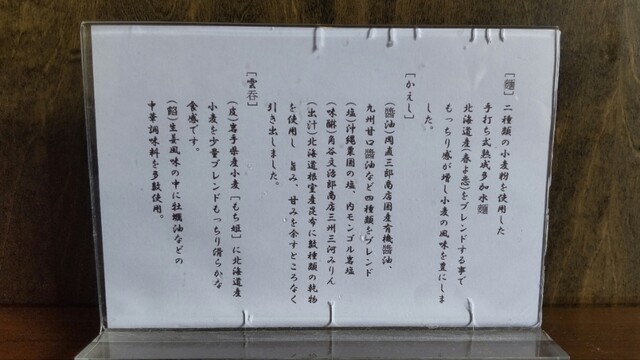 ［麵］二種類の小麦粉を使用した
手打ち式熟成多加水麵
北海道産（春よ恋）をブレンドする事で
もっちり感が増し小麦の風味を豊にしま
した。
［かえし］
（醬油）岡直三郎商店国産有機醬油、
九州甘口醬油など四種類をブレンド
（塩）沖縄粟国の塩、内モンゴル岩塩
（味醂）角谷文治郎商店三州三河みりん
（出汁）北海道根室産昆布に数種類の乾物
を使用し 旨み、甘みを余すところなく
引き出しました。
［雲呑］
（皮）岩手県産小麦［もち姫］に北海道産
小麦を少量ブレンドもっちり滑らかな
食感です。
（餡）生姜風味の中に牡蠣油などの
中華調味料を多数使用。